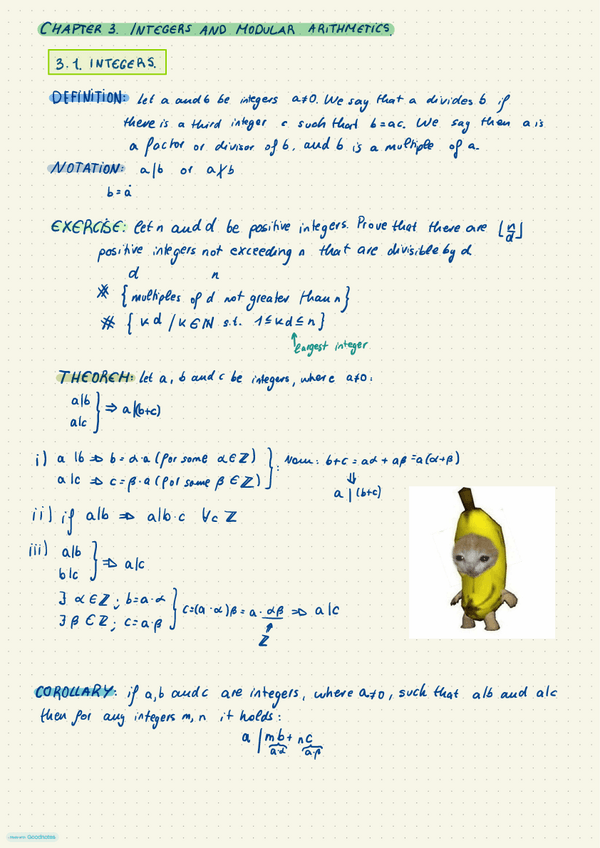 CHAPTER 3. INTEGERS AND MODULAR ARITHMETICS.
3.1. INTEGERS.
DEFINITION: let a and b be integers a≠0. We say that a divides b if
there is a third integer c such that b=ac. We say then a is
a factor or divisor of b, and b is a multiple of a.
NOTATION: a|b or a∤b
b=ȧ
EXERCISE: let n and d be positive integers. Prove that there are ⌊n/d⌋
positive integers not exceeding n that are divisible by d
d n
# {multiples of d not greater than n}
# {kd / k∈ℕ s.t. 1≤kd≤n}
largest integer
THEOREM: let a, b and c be integers, where a≠0:
a|b
a|c } ⇒ a|(b+c)
i) a|b ⇒ b=α·a (for some α∈ℤ)
a|c ⇒ c=β·a (for some β∈ℤ) } : Now: b+c = aα + aβ = a(α+β)
⇓
a|(b+c)
ii) if a|b ⇒ a|b·c ∀c ℤ
iii) a|b
b|c } ⇒ a|c
∃ α∈ℤ; b=a·α
∃ β∈ℤ; c=a·β } c=(a·α)β = a·αβ ⇒ a|c
ℤ
COROLLARY: if a, b and c are integers, where a≠0, such that a|b and a|c
then for any integers m, n it holds:
a | mb + nc
a·α a·β
Made with Goodnotes